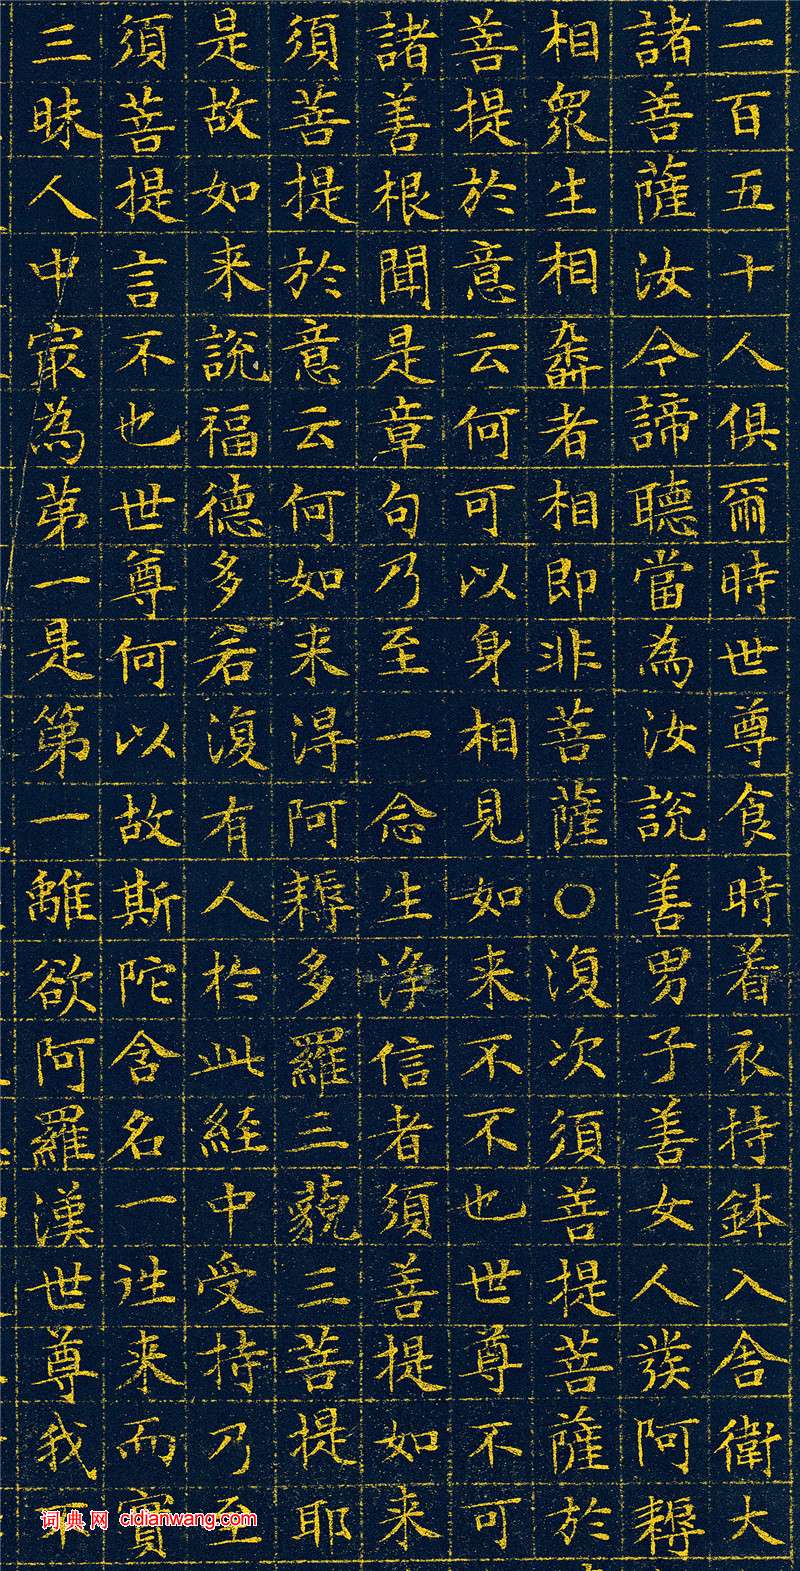 二百五十人俱爾時世尊食時着衣持鉢入舍衛大
諸菩薩汝今諦聽當為汝說善男子善女人發阿耨
相衆生相壽者相即非菩薩○復次須菩提菩薩於
菩提於意云何可以身相見如来不不也世尊不可
諸善根聞是章句乃至一念生净信者須菩提如来
須菩提於意云何如来得阿耨多羅三藐三菩提耶
是故如来說福德多若復有人於此經中受持乃至
須菩提言不也世尊何以故斯陀含名一往来而實
三昧人中最為第一是第一離欲阿羅漢世尊我不
词典网 cidianwang.com